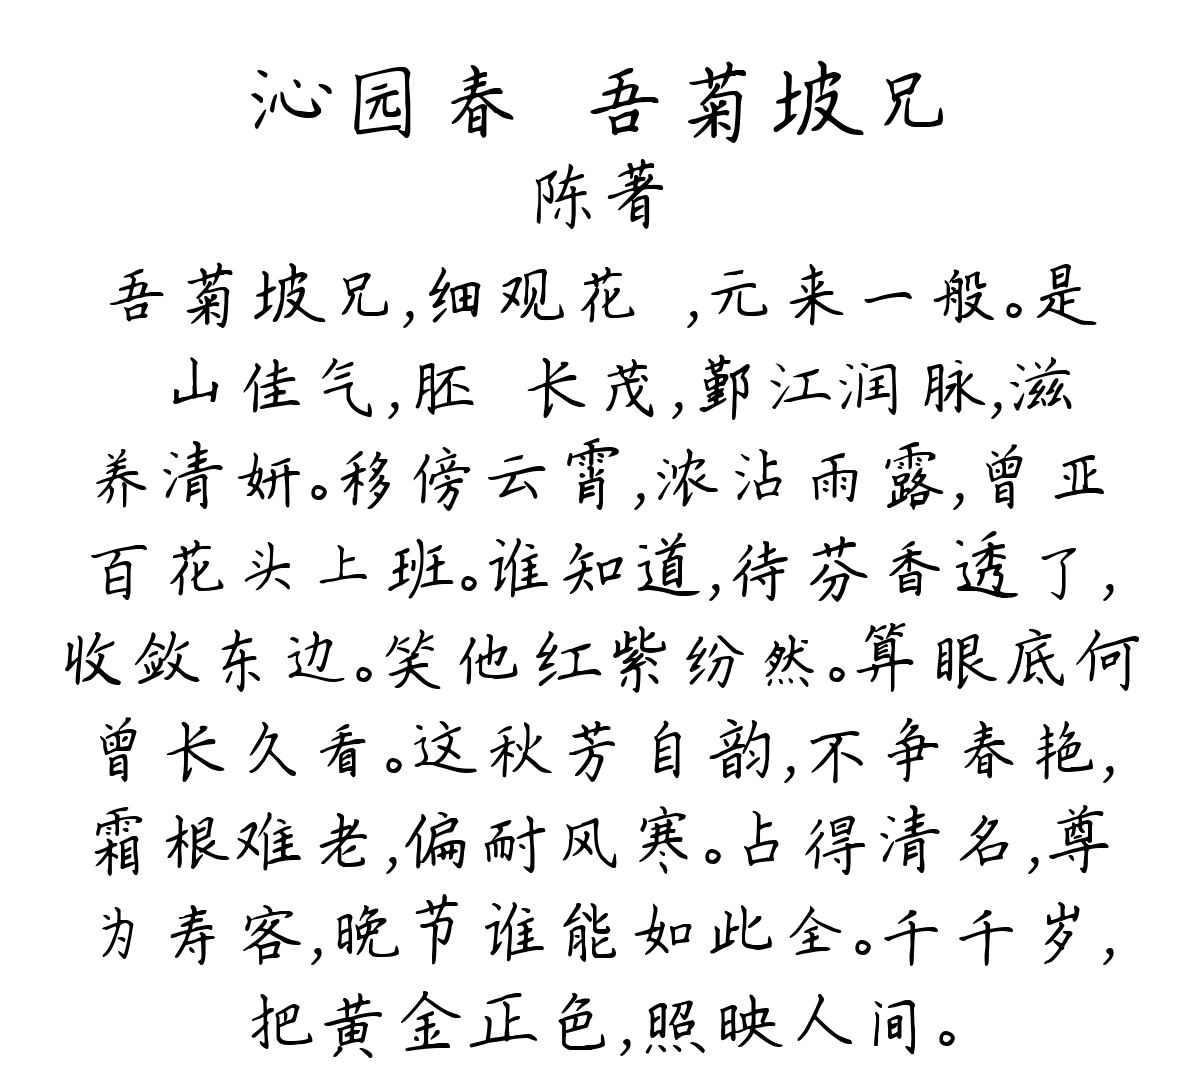 沁园春 吾菊坡兄
陈著
吾菊坡兄,细观花 ,元来一般。是
山佳气,胚 长茂,鄞江润脉,滋
养清妍。移傍云霄,浓沾雨露,曾亚
百花头上班。谁知道,待芬香透了,
收敛东边。笑他红紫纷然。算眼底何
曾长久看。这秋芳自韵,不争春艳,
霜根难老,偏耐风寒。占得清名,尊
为寿客,晚节谁能如此全。千千岁,
把黄金正色,照映人间。